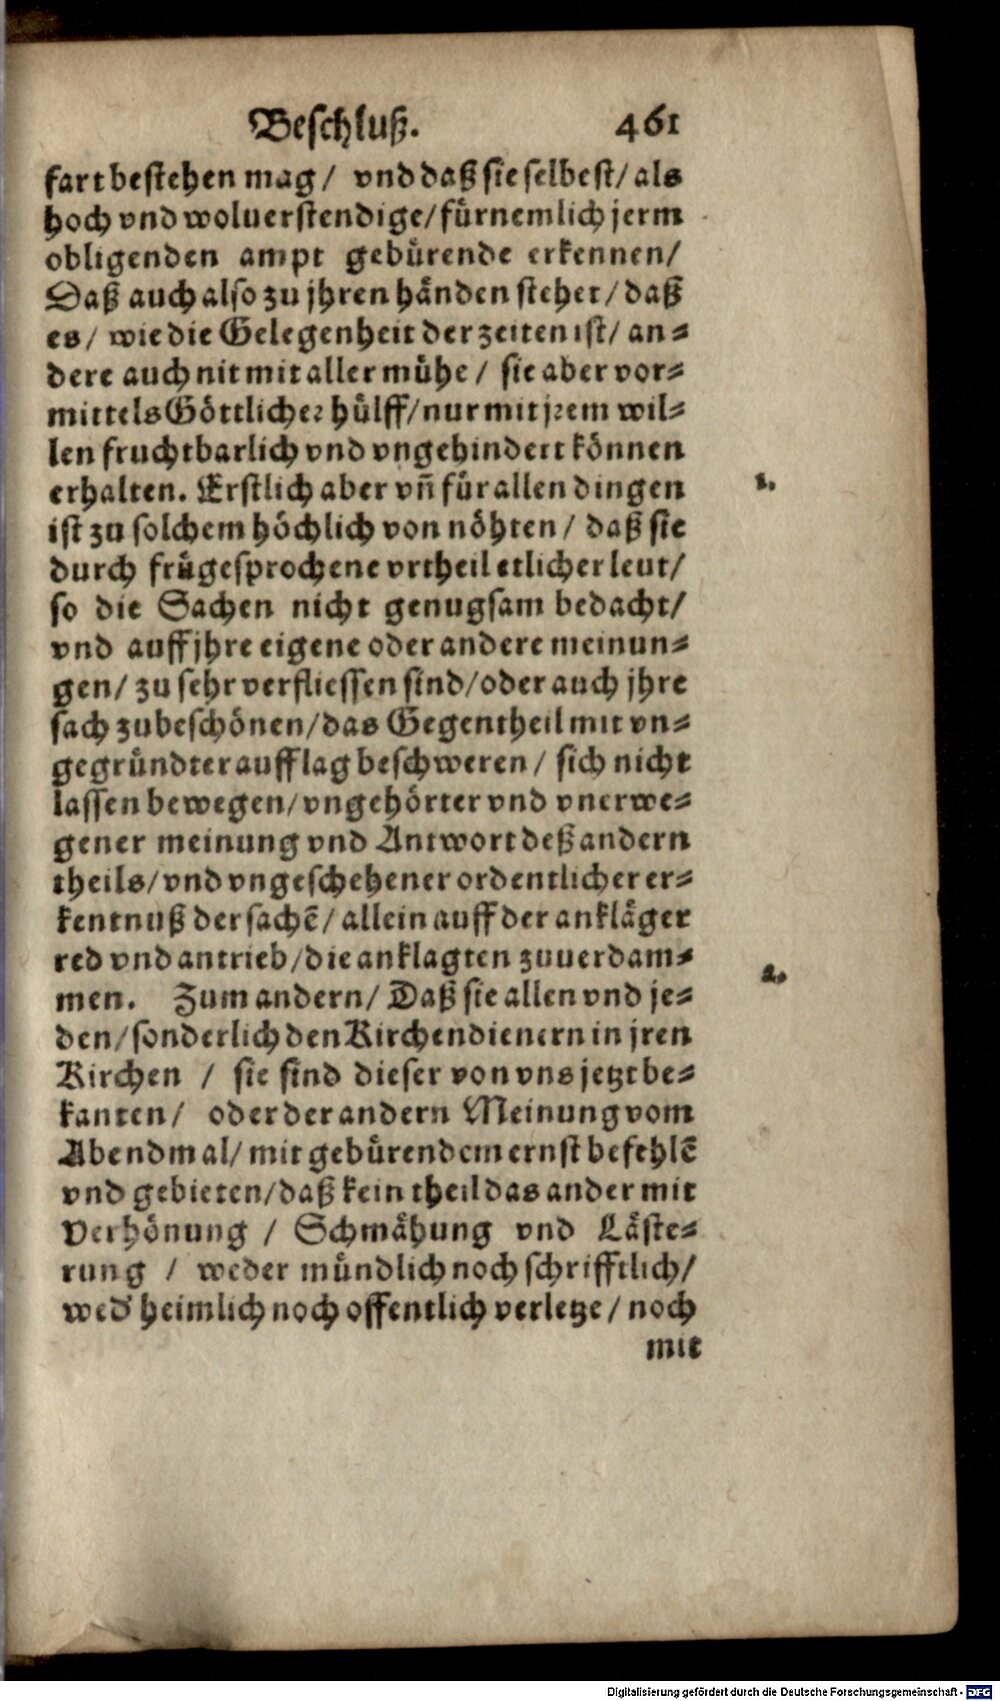 Beschluß. 461
fart bestehen mag / vnd daß sie selbest / als
hoch vnd woluerstendige / fürnemlich jerm
obligenden ampt gebürende erkennen /
Daß auch also zu jhren händen stehet / daß
es / wie die Gelegenheit der zeiten ist / an-
dere auch nit mit aller mühe / sie aber vor-
mittels Göttlicher hülff / nur mit jrem wil-
len fruchtbarlich vnd vngehindert können
erhalten. Erstlich aber vñ für allen dingen 1.
ist zu solchem höchlich von nöhten / daß sie
durch frügesprochene vrtheil etlicher leut /
so die Sachen nicht genugsam bedacht /
vnd auff jhre eigene oder andere meinun-
gen / zu sehr verfliessen sind / oder auch jhre
sach zubeschönen / das Gegentheil mit vn-
gegründter aufflag beschweren / sich nicht
lassen bewegen / vngehörter vnd vnerwe-
gener meinung vnd Antwort deß andern
theils / vnd vngeschehener ordentlicher er-
kentnuß der sachẽ / allein auff der ankläger
red vnd antrieb / die anklagten zuuerdam-
men. Zum andern / Daß sie allen vnd je- 2.
den / sonderlich den Kirchendienern in jren
Kirchen / sie sind dieser von vns jetzt be-
kanten / oder der andern Meinung vom
Abendmal / mit gebürendem ernst befehlẽ
vnd gebieten / daß kein theil das ander mit
Verhönung / Schmähung vnd Läste-
rung / weder mündlich noch schrifftlich /
wed' heimlich noch offentlich verletze / noch
mit
Digitalisierung gefördert durch die Deutsche Forschungsgemeinschaft - DFG